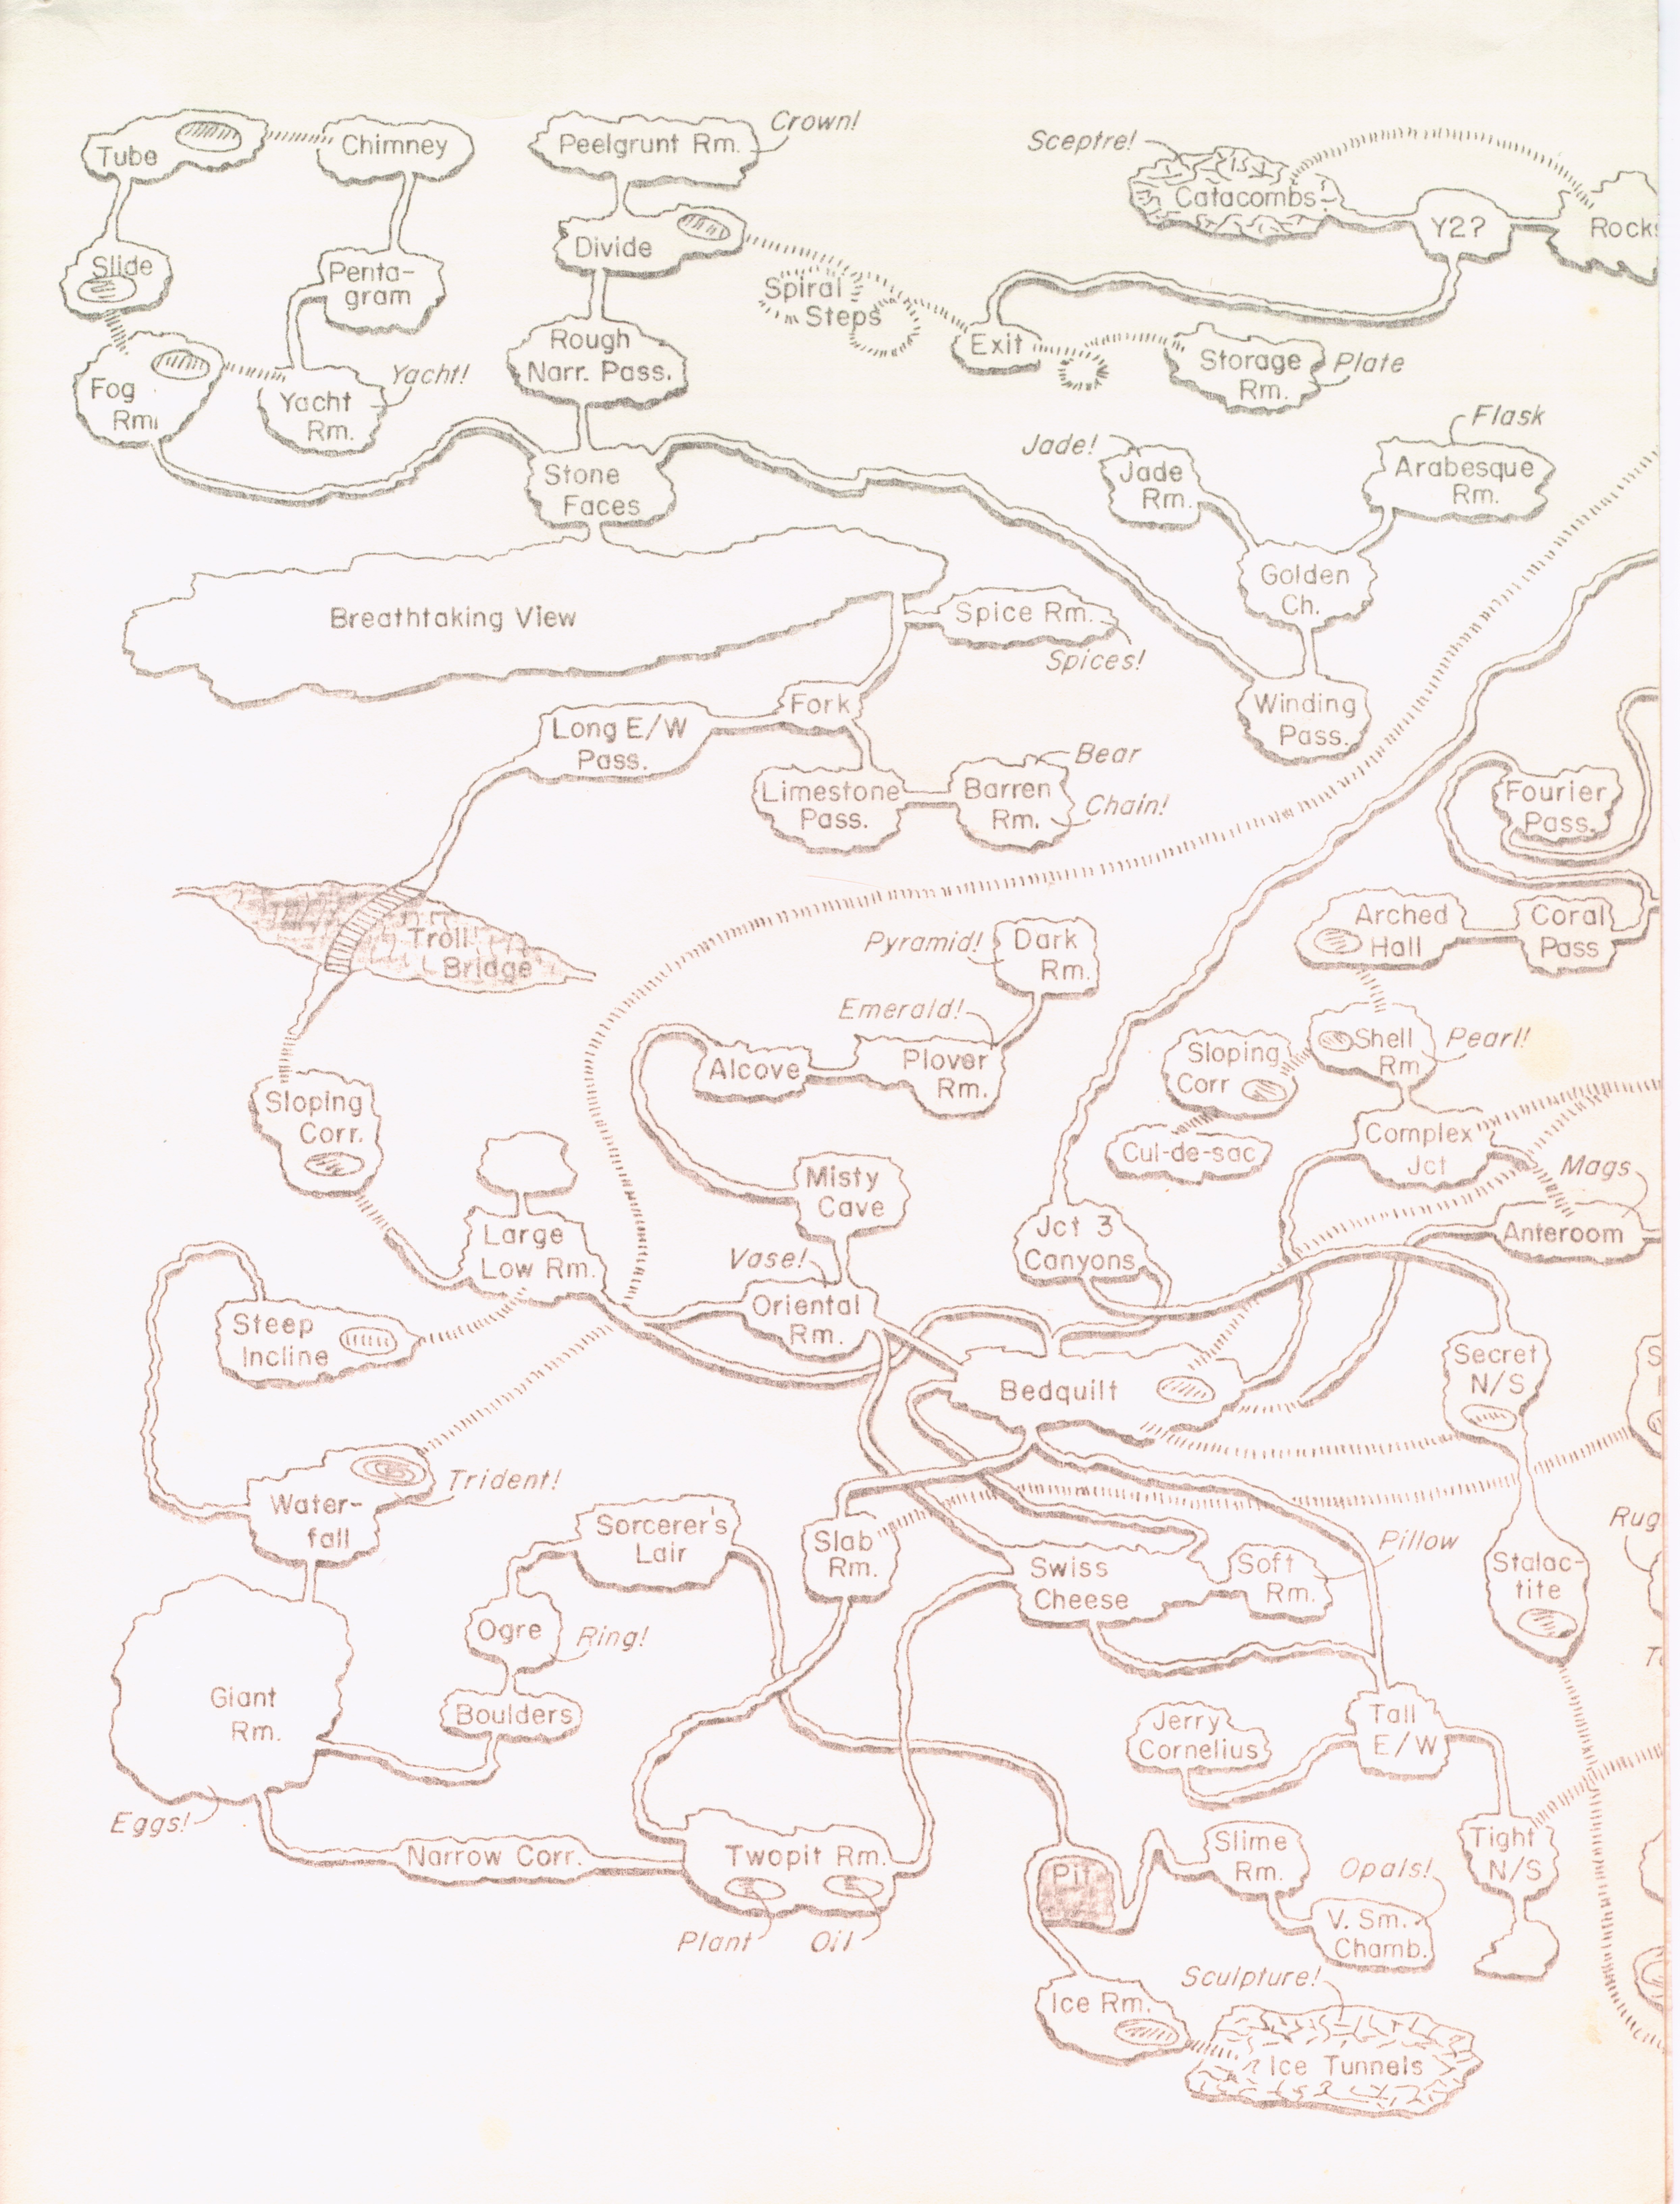 Crown!
Tube
Chimney
Peelgrunt Rm.
Sceptre!
Catacombs
Y2?
Divide
Slide
Penta-
gram
Spiral
Steps
Exit
Rough
Narr. Pass.
Storage
Rm.
Plate
Fog
Rm.
Yacht
Rm.
Yacht!
Flask
Jade!
Jade
Rm.
Arabesque
Rm.
Stone
Faces
Golden
Ch.
Breathtaking View
Spice Rm.
Spices!
Fork
Winding
Pass.
Long E/W
Pass.
Bear
Limestone
Pass.
Barren
Rm.
Chain!
Fourier
Pass.
Troll
Bridge
Pyramid!
Dark
Rm.
Arched
Hall
Coral
Pass
Emerald!
Alcove
Plover
Rm.
Sloping
Corr
Shell
Rm
Pearl!
Sloping
Corr.
Cul-de-sac
Complex
Jct
Mags
Misty
Cave
Large
Low Rm.
Jct 3
Canyons
Anteroom
Vase!
Oriental
Rm.
Steep
Incline
Bedquilt
Secret
N/S
Water-
fall
Trident!
Sorcerer's
Lair
Slab
Rm.
Swiss
Cheese
Soft
Rm.
Pillow
Stalac-
tite
Rug
Ogre
Ring!
Giant
Rm.
Boulders
Jerry
Cornelius
Tall
E/W
Eggs!
Narrow Corr.
Twopit Rm.
Pit
Slime
Rm.
Tight
N/S
Opals!
Plant
Oil
V. Sm.
Chamb.
Sculpture!
Ice Rm.
Ice Tunnels